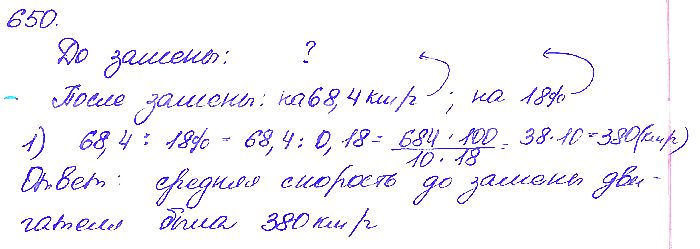 650.
До замены: ?
После замены: на 68,4 км/ч ; на 18%
1) 68,4 : 18% = 68,4 : 0,18 = 684 · 100 / 10 · 18 = 38 · 10 = 380 (км/ч)
Ответ: средняя скорость до замены дви-
гателя была 380 км/ч